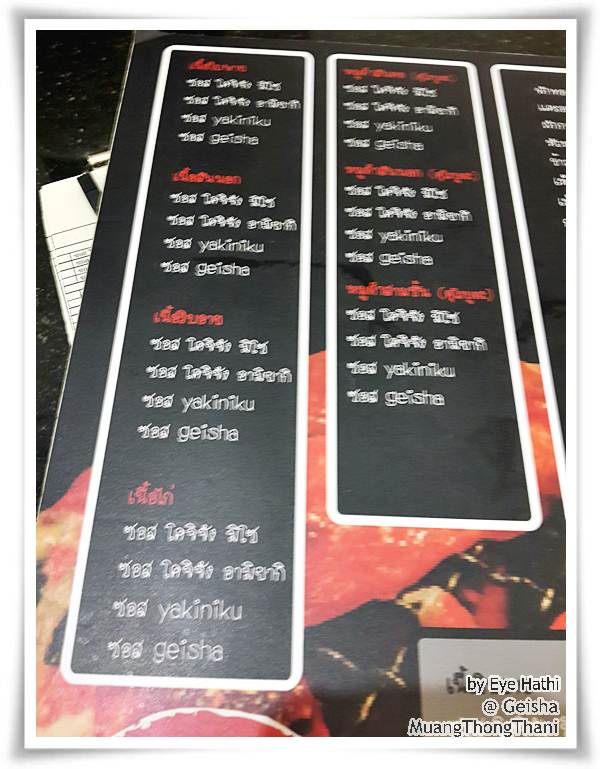 ซอส โคจิจัง มิโซ
ซอส โคจิจัง อามิยากิ
ซอส yakiniku
ซอส geisha
เนื้อสันนอก
ซอส โคจิจัง มิโซ
ซอส โคจิจัง อามิยากิ
ซอส yakiniku
ซอส geisha
ซอส โคจิจัง มิโซ
ซอส โคจิจัง อามิยากิ
ซอส yakiniku
ซอส geisha
เนื้อไก่
ซอส โคจิจัง มิโซ
ซอส โคจิจัง อามิยากิ
ซอส yakiniku
ซอส geisha
ซอส โคจิจัง มิโซ
ซอส โคจิจัง อามิยากิ
ซอส yakiniku
ซอส geisha
หมูดำสันนอก (คุโรบูตะ)
ซอส โคจิจัง มิโซ
ซอส โคจิจัง อามิยากิ
ซอส yakiniku
ซอส geisha
หมูดำสามชั้น (คุโรบูตะ)
ซอส โคจิจัง มิโซ
ซอส โคจิจัง อามิยากิ
ซอส yakiniku
ซอส geisha
by Eye Hathi
@ Geisha
MuangThongThani